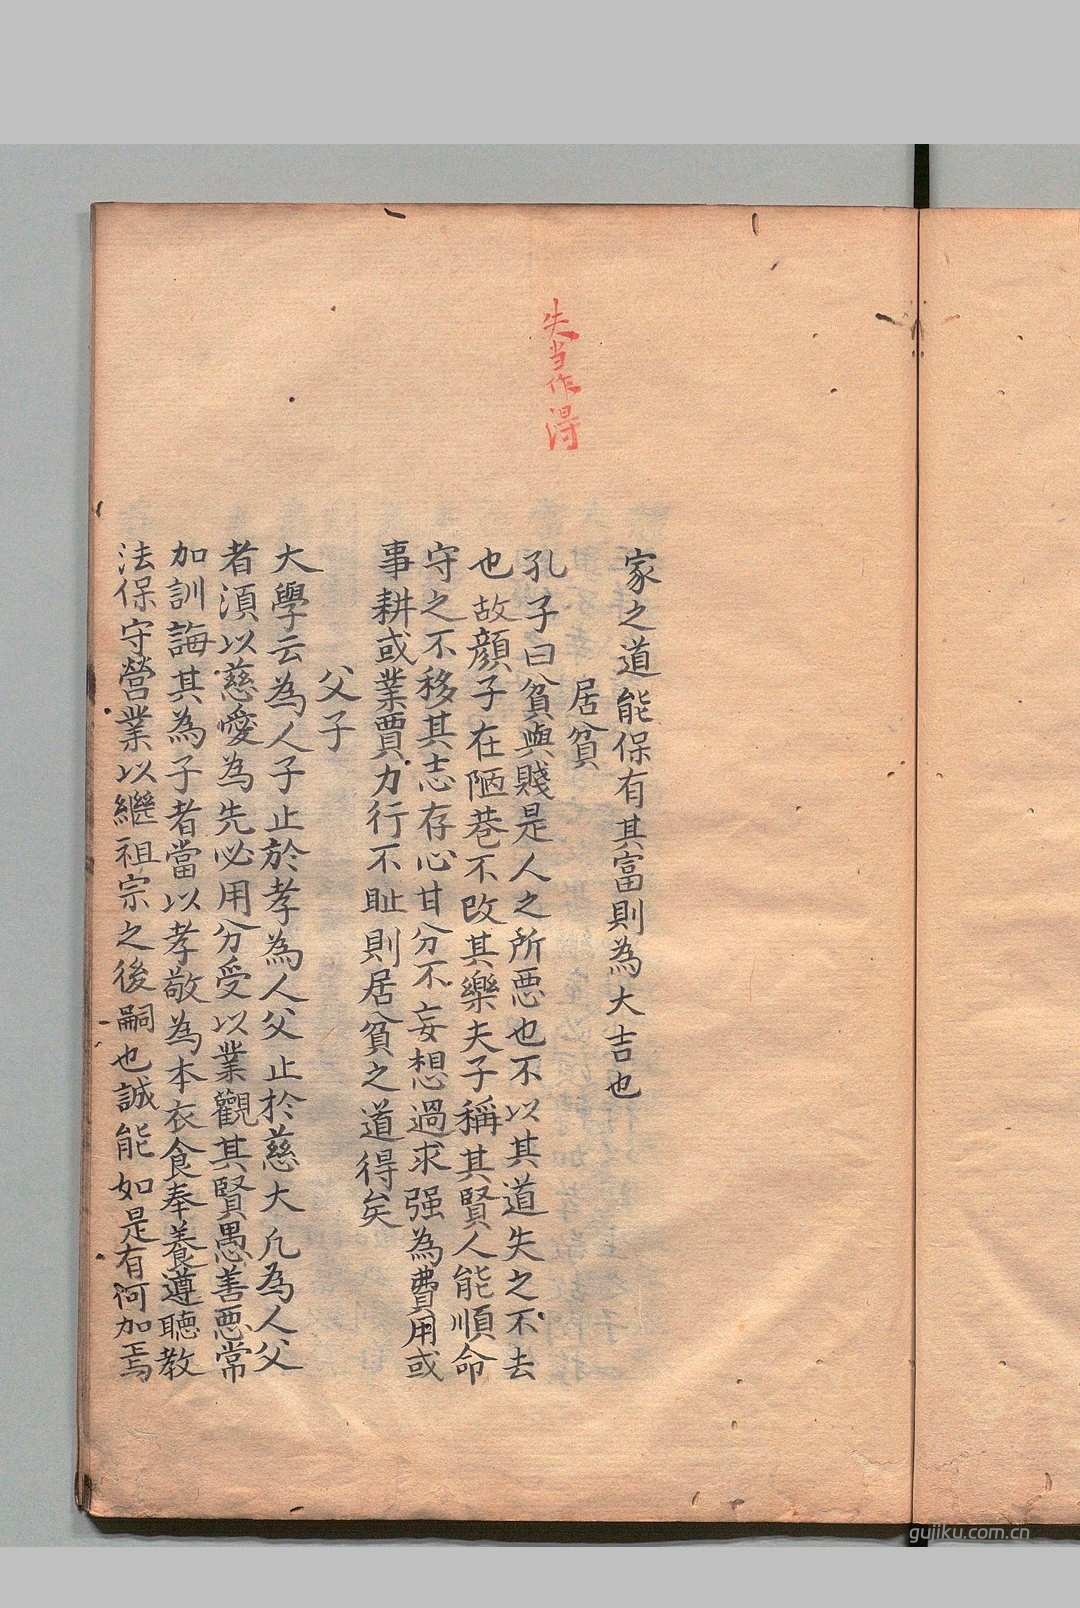 失当作得
家之道能保有其富則為大吉也
居貧
孔子曰貧與賤是人之所惡也不以其道失之不去
也故顔子在陋巷不改其樂夫子稱其賢人能順命
守之不移其志存心甘分不妄想過求强為費用或
事耕或業賈力行不耻則居貧之道得矣
父子
大學云為人子止於孝為人父止於慈大凡為人父
者須以慈愛為先必用分受以業觀其賢愚善惡常
加訓誨其為子者當以孝敬為本衣食奉養遵聽教
法保守營業以繼祖宗之後嗣也誠能如是有何加焉
gujiku.com.cn